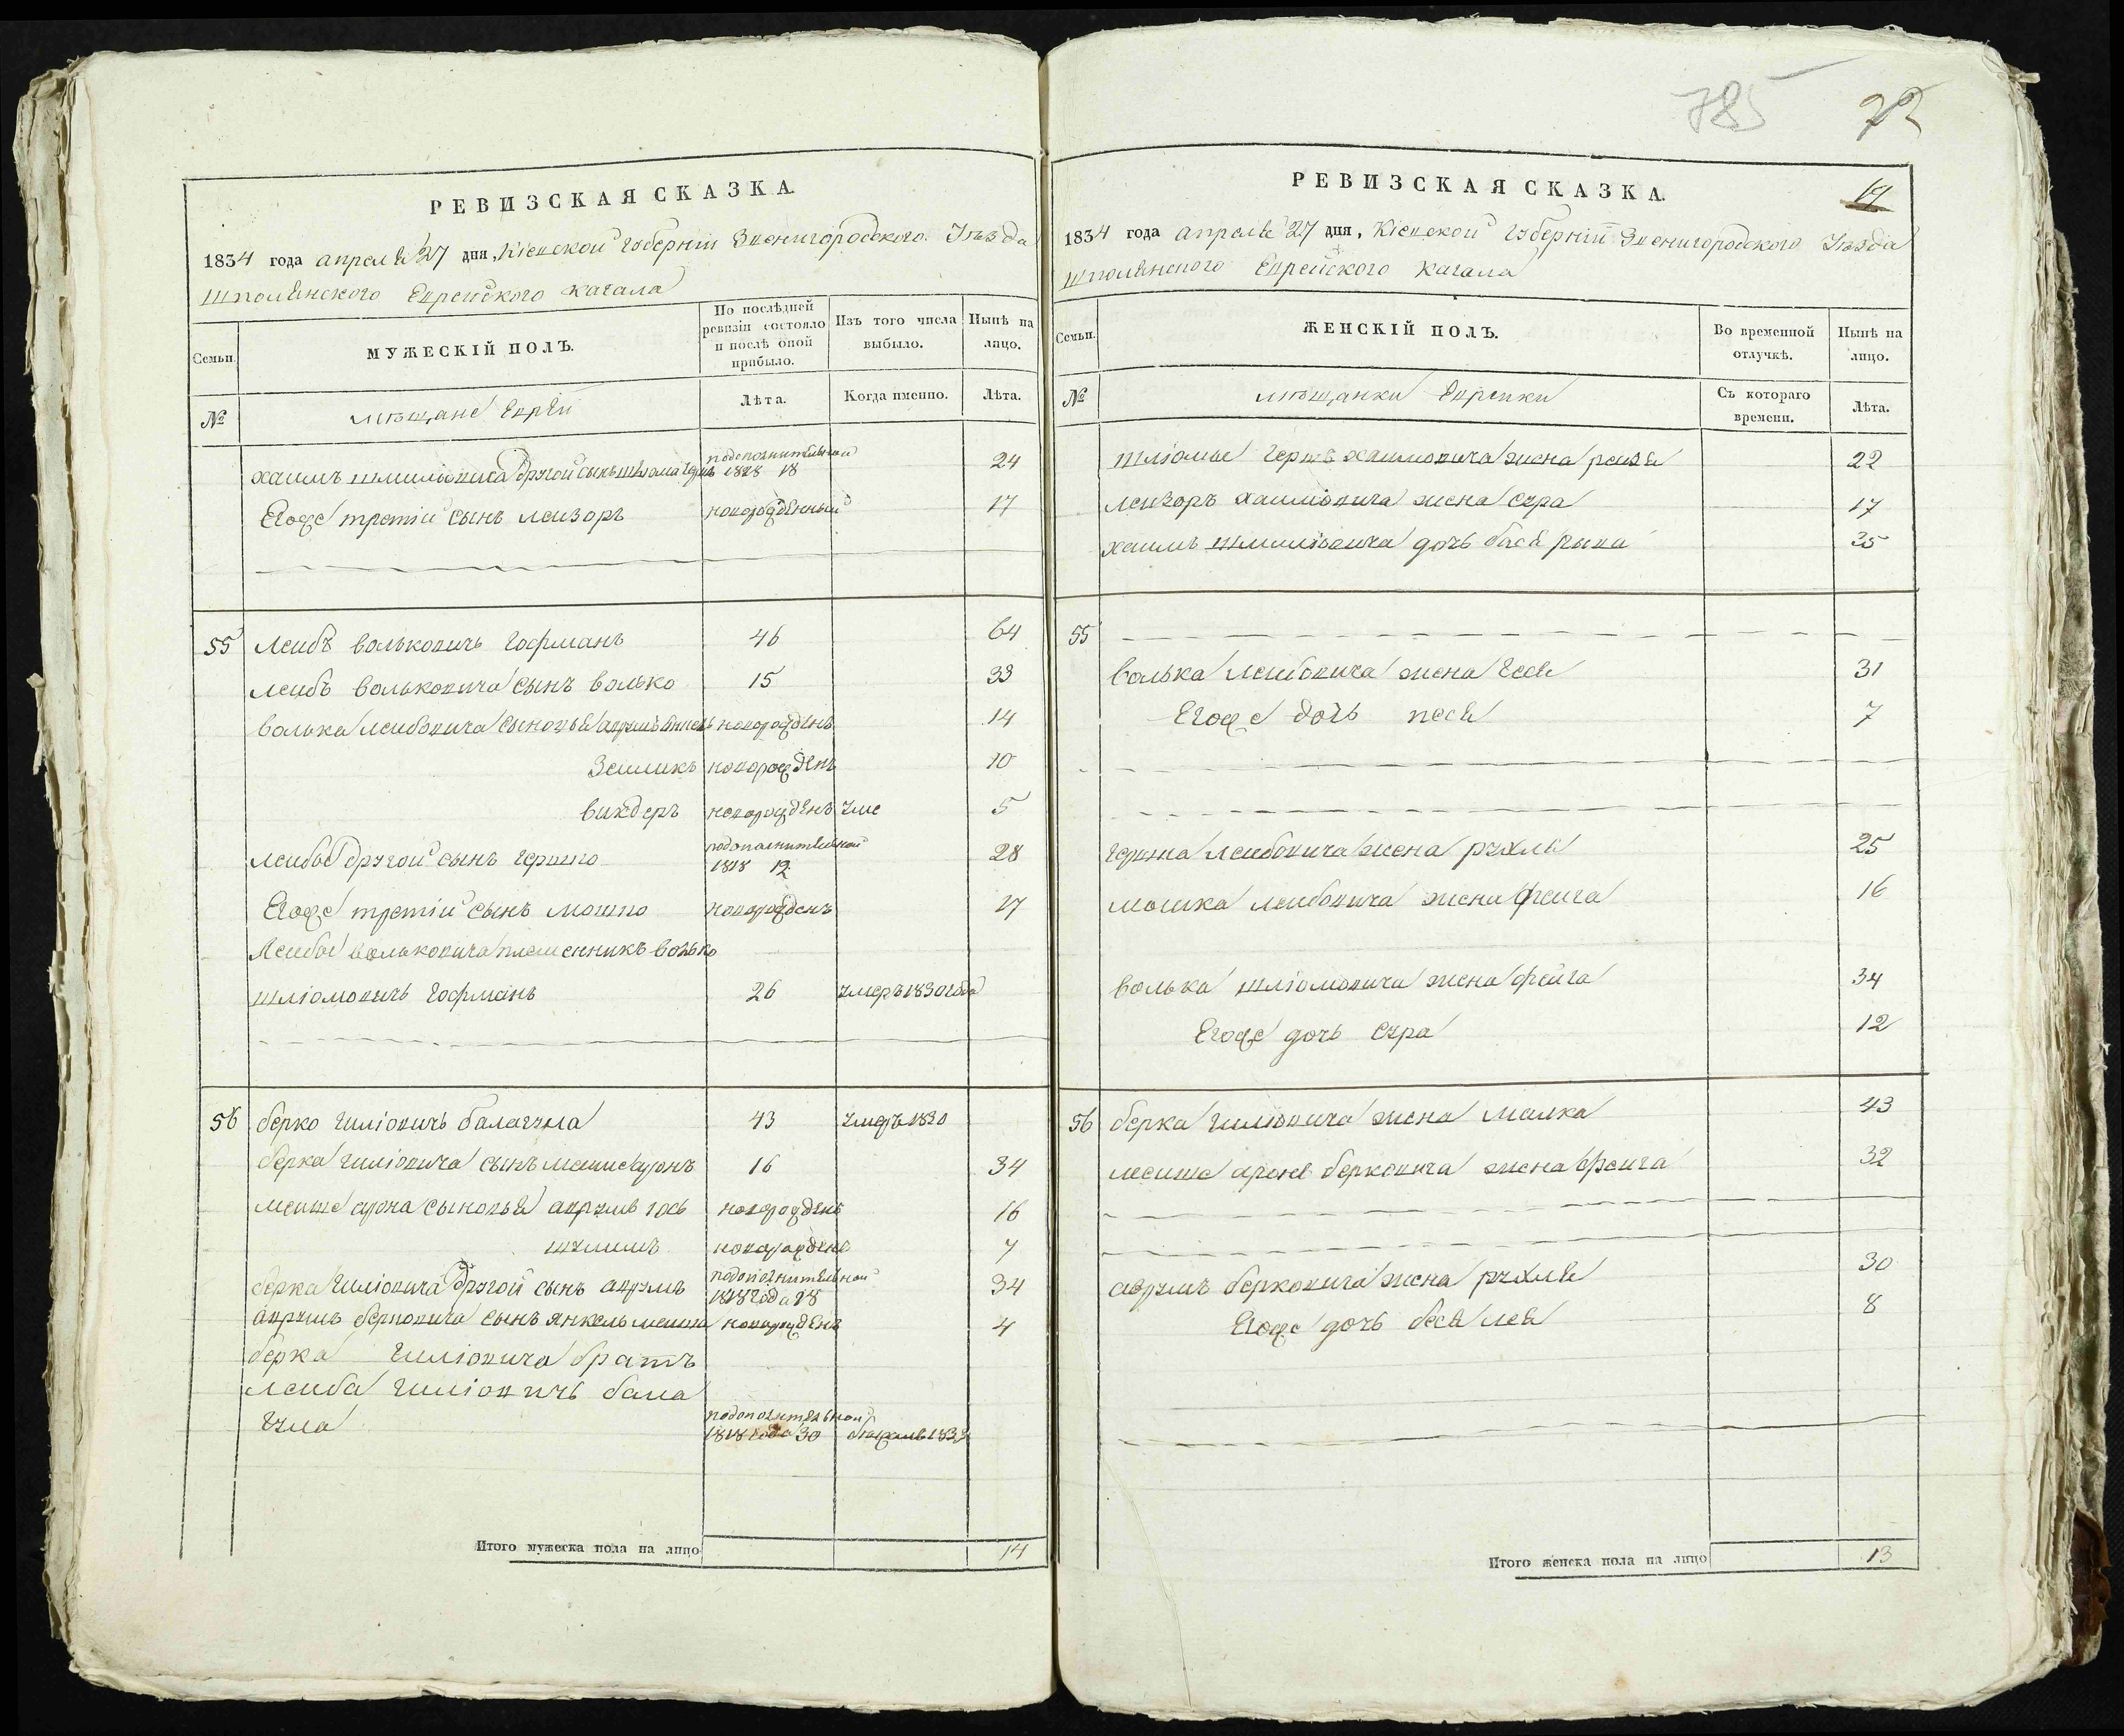 РЕВИЗСКАЯ СКАЗКА.
1834 года апреля 27 дня, Кіевской Губерніи Звенигородского Уѣзда
шполянского Еврейского кагала
Семьи.
МУЖЕСКІЙ ПОЛЪ.
По послѣдней ревизіи состояло и послѣ оной прибыло.
Изъ того числа выбыло.
Нынѣ на лицо.
№
мѣщане Евреи
Лѣта.
Когда именно.
Лѣта.
хаимъ шмиліовича другой сынъ шліома герш подополнительной 1818 18 24
Егоже третій сынъ лейзоръ новорожденный 17
55 Лейбъ вольковичъ Гофманъ 46 64
лейбъ вольковича сынъ волько 15 33
волька лейбовича сыновья новорожденъ 14
Зейликъ новорожденъ 10
викдеръ новорожденъ уме 5
лейбы другой сынъ гершко подополнительной 1818 12 28
Егоже третій сынъ мошко новорожденъ 17
Лейбы вольковича племенникъ волько
шліомовичъ Гофманъ 26 умеръ 1830 года
56 берко гиліовичъ балагула 43 умеръ 1830
берка гиліовича сынъ мейше аронъ 16 34
мейше арона сыновья аврумъ іось новорожденъ 16
шулимъ новорожденъ 7
берка гиліовича другой сынъ аврумъ подополнительной 1818 года 18 34
аврумъ берковича сынъ янкель мейше новорожденъ 4
берка гиліовича братъ
лейба гиліовичъ бала
гула подополнительной 1818 года 30
Итого мужеска пола на лицо 14
785 22
РЕВИЗСКАЯ СКАЗКА.
19
1834 года апреля 27 дня, Кіевской Губерніи Звенигородского Уѣзда
шполянского Еврейского кагала
Семьи.
ЖЕНСКІЙ ПОЛЪ.
Во временной отлучкѣ.
Нынѣ на лицо.
№
мѣщанки Еврейки
Съ котораго времени.
Лѣта.
шліомы герша хаимовича жена рейзя 22
лейзоръ хаимовича жена сура 17
хаимъ шмиліовича дочь бася рыва 35
55
волька лейбовича жена геся 31
Егоже дочь песя 7
гершка лейбовича жена рухля 25
мошка лейбовича жена фейга 16
волька шліомовича жена фейга 34
Егоже дочь сура 12
56 берка гиліовича жена малка 43
мейше арона берковича жена фейга 32
аврумъ берковича жена рухля 30
Егоже дочь бася лея 8
Итого женска пола на лицо 13